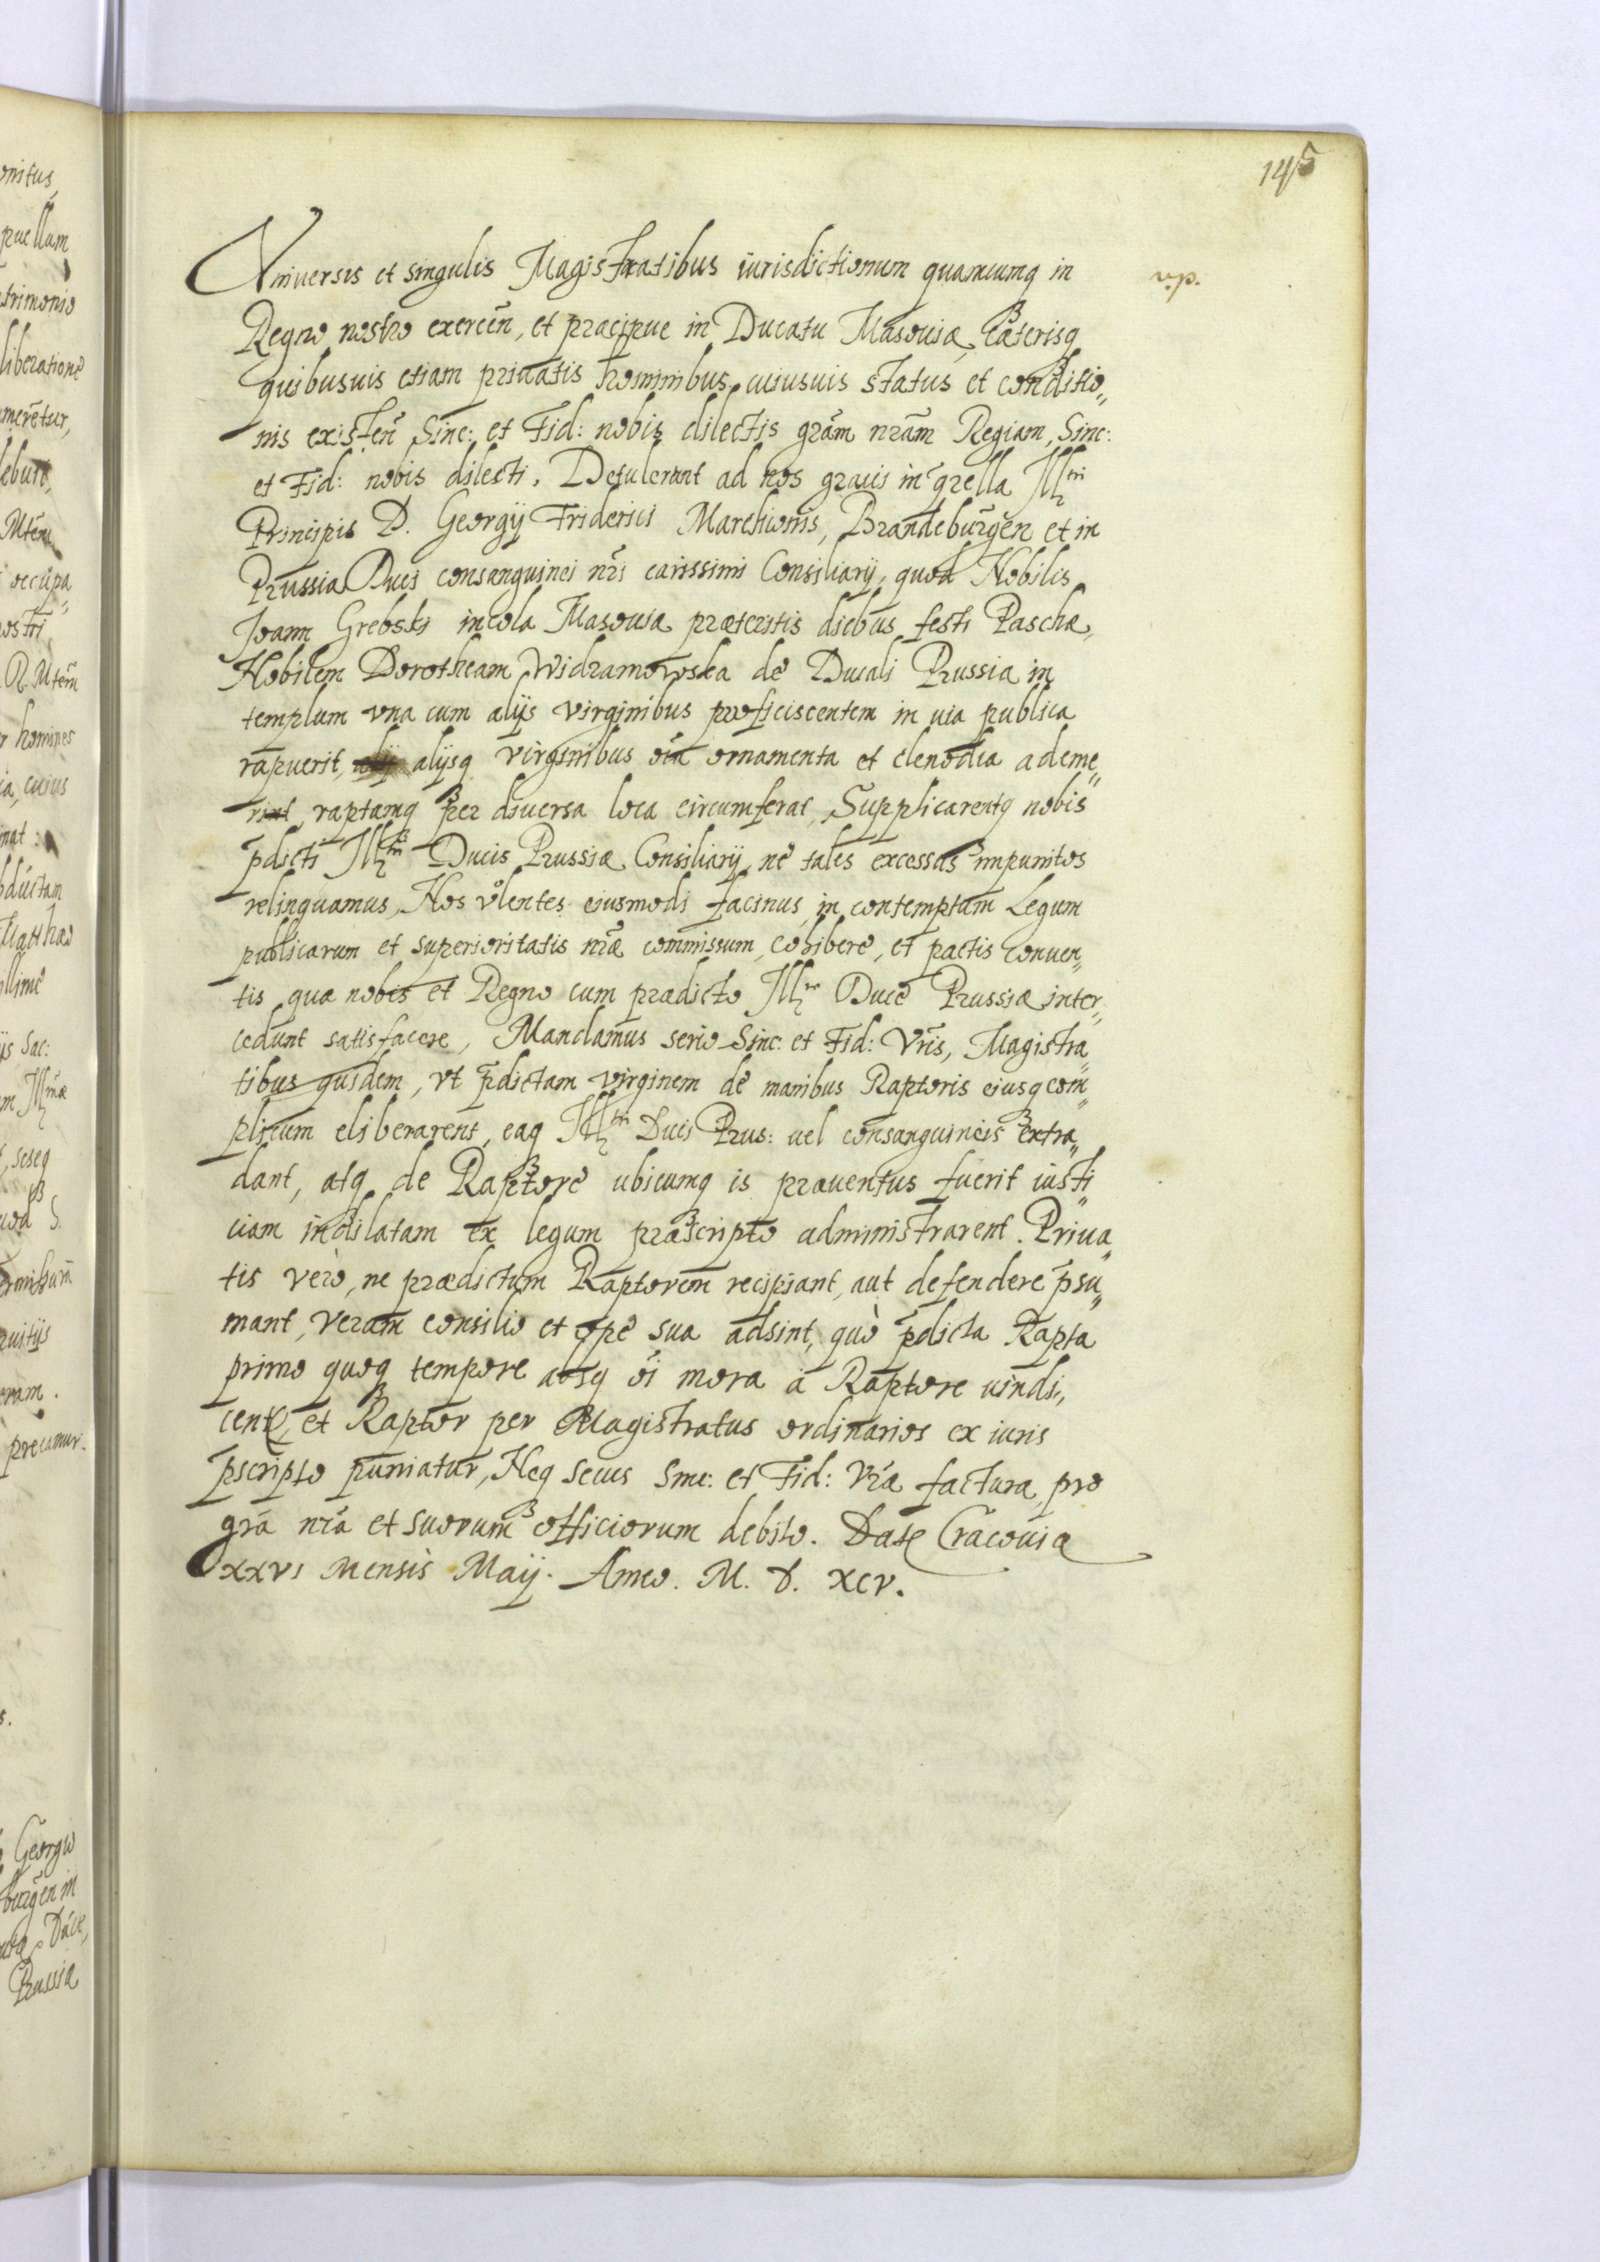 145
Vniuersis et singulis Magistratibus iurisdictionum quarumcunq in
Regno nostro exercen̄, et praecipue in Ducatu Masouiæ, cæterisq
quibusuis etiam priuatis hominibus cuiusuis status et conditio„
nis existen̄ Sinc: et Fid: nobis dilectis grām nrām Regiam, Sinc:
et Fid: nobis dilecti. Detulerunt ad nos graui in qrella Ill
Principis D. Georgij Friderici Marchionis, Brandeburgēn et in
Prussia Ducis consanguinei nri carissimi Consiliarij, quod Nobilis
Joann Grebski incola Masouiæ præteritis diebus festi Paschæ,
Nobilem Dorotheam Widzamowska de Ducali Prussia in
templum vna cum alijs virginibus proficiscentem in uia publica
rapuerit, alijsq virginibus oīa ornamenta et clenodia ademe„
rint, raptamq per diuersa loca circumferat, Supplicarentq nobis
p̄dicti Ill Ducis Prussiæ Consiliarij, ne tales excessus impunitos
relinquamus, Nos volentes eiusmodi facinus in contemptum Legum
publicarum et superioritatis nræ commissum, cohibere, et pactis conuen„
tis quæ nobis et Regno cum prædicto Ill Duce Prussiæ inter„
cedunt satisfacere, Mandamus serio Sinc: et Fid: Vris, Magistra„
tibus quidem, vt p̄dictam virginem de manibus Raptoris eiusq com„
plicum eliberarent, eaq Ill Ducis Prus: uel consanguineis extra„
dant, atq de Raptore ubicumq is præuentus fuerit iusti„
ciam indilatam ex legum præscripto administrarent. Priua„
tis vero, ne prædictum Raptorem recipiant, aut defendere p̄su„
mant, verum consilio et ope sua adsint, quò p̄dicta Rapta
primo quoq tempore absq oī mora à Raptore uindi„
cent, et Raptor per Magistratus ordinarios ex iuris
p̄scripto puniatur, Neq secus Sinc: et Fid: Vræ factura pro
grā nrā et suorum officiorum debito. Dat Cracouiæ
xxvi mensis Maij. Anno. M. D. xcv.